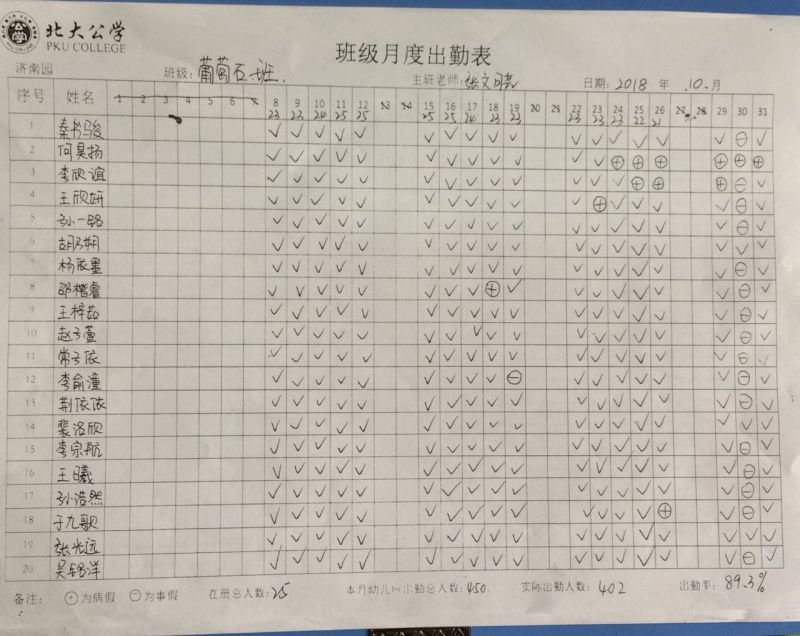 北大公学
PKU COLLEGE
班级月度出勤表
济南园 班级: 葡萄石班. 主班老师: 张文晓 日期: 2018 年 10 月
序号 姓名 1 2 3 4 5 6 7 8 9 10 11 12 13 14 15 16 17 18 19 20 21 22 23 24 25 26 27 28 29 30 31
23 23 24 25 25 25 25 24 23 23 23 23 23 22 21
1 秦书骏
2 何昊扬
3 李欣谊
4 王欣妍
5 孙一铭
6 胡乃朔
7 杨宸墨
8 邵楷睿
9 王梓茹
10 赵子萱
11 常子依
12 李俞潼
13 荆依依
14 裴洛欣
15 李宗航
16 王曦
17 孙浩然
18 于九歌
19 张光远
20 吴铭洋
备注: ⊕为病假 ⊖为事假 在册总人数: 25 本月幼儿应出勤总人数: 450. 实际出勤人数: 402 出勤率: 89.3%